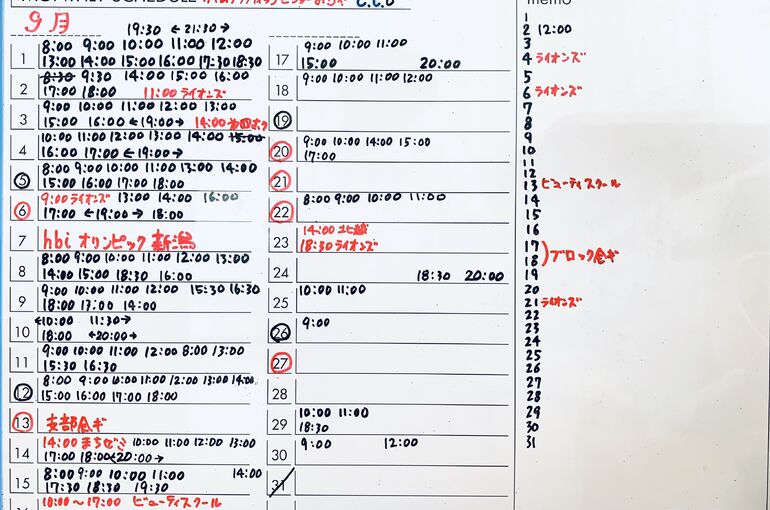 MONTHLY SCHEDULE
memo
9月
19:30 ←21:30→
1 8:00 9:00 10:00 11:00 12:00
13:00 14:00 15:00 16:00 17:30 18:30
2 8:30 9:30 14:00 15:00 16:00
17:00 18:00 11:00 ライオンズ
3 9:00 10:00 11:00 12:00 13:00
15:00 16:00 ←19:00→ 14:00
4 10:00 11:00 12:00 13:00 14:00 15:00
16:00 17:00 ←19:00→
5 8:00 9:00 10:00 11:00 13:00 14:00
15:00 16:00 17:00 18:00
6 9:00 ライオンズ 13:00 14:00 16:00
17:00 ←19:00→ 18:00
7 hbi オリンピック 新潟
8 8:00 9:00 10:00 11:00 12:00 13:00
14:00 15:00 18:30 16:00
9 9:00 10:00 11:00 12:00 15:30 16:30
18:00 17:00 14:00
10 ←10:00 11:30→
18:00 ←20:00→
11 9:00 10:00 11:00 12:00 8:00 13:00
15:30 16:30
12 8:00 9:00 10:00 11:00 12:00 13:00 14:00
15:00 16:00 17:00 18:00
13 支部会ギ
14 14:00 まちゼミ 10:00 11:00 12:00 13:00
17:00 18:00 ←20:00→
15 8:00 9:00 10:00 11:00 14:00
17:30 18:30 19:30
10:00〜17:00 ビューティスクール
17 9:00 10:00 11:00
15:00 20:00
18 9:00 10:00 11:00 12:00
19
20 9:00 10:00 14:00 15:00
17:00
21
22 8:00 9:00 10:00 11:00
23 14:00 北越
18:30 ライオンズ
24 18:30 20:00
25 10:00 11:00
26 9:00
27
28
29 10:00 11:00
18:30
30 9:00 12:00
31
1
2 12:00
3
4 ライオンズ
5
6 ライオンズ
7
8
9
10
11
12
13 ビューティスクール
14
15
16
17
18 )ブロック会ギ
19
20
21 ライオンズ
22
23
24
25
26
27
28
29
30
31